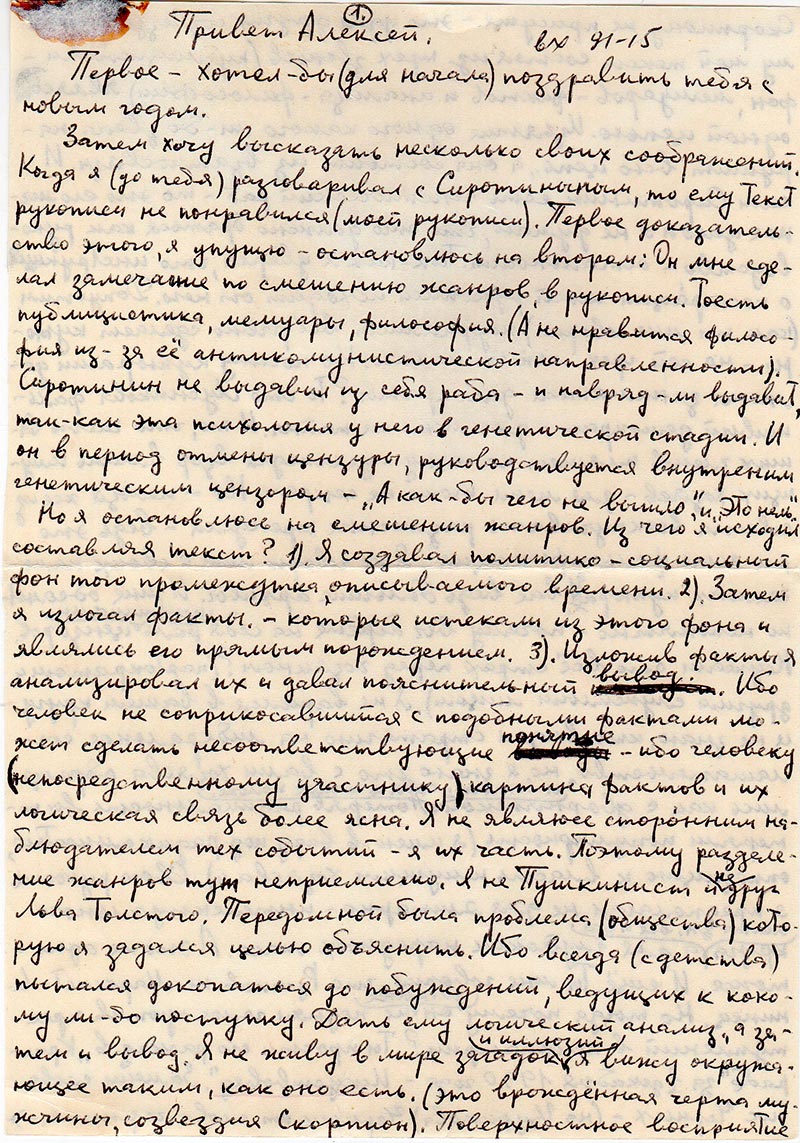 1.
Привет Алексей. вх 91-15
Первое – хотел-бы (для начала) поздравить тебя с
новым годом.
Затем хочу высказать несколько своих соображений.
Когда я (до тебя) разговаривал с Сиротининым, то ему текст
рукописи не понравился (моей рукописи). Первое доказатель-
ство этого, я упущю – остановлюсь на втором: Он мне сде-
лал замечание по смешению жанров, в рукописи. Тоесть
публицистика, мемуары, философия. (А не нравится филосо-
фия из-за её антикомунистической направленности).
Сиротинин не выдавил из себя раба – и наврядли выдавит,
так-как эта психология у него в генетической стадии. И
он в период отмены цензуры, руководствуется внутреним
генетическим цензором – „А как-бы чего не вышло", и „Это нельз."
Но я остановлюсь на смешении жанров. Из чего я исходил
составляя текст? 1). Я создавал политико-социальный
фон того промежутка, описываемого времени. 2). Затем
я излогал факты. – которые истекали из этого фона и
являлись его прямым порождением. 3). Изложив факты я
анализировал их и давал пояснительный вывод. Ибо
человек не соприкосавшийся с подобными фактами мо-
жет сделать несоответствующие понятие – ибо человеку
(непосредственному участнику) картина фактов и их
логическая связь более ясна. Я не являюсь сторонним на-
блюдателем тех событий – я их часть. Поэтому разделе-
ние жанров тут неприемлемо. Я не Пушкинист и не друг
Льва Толстого. Передомной была проблема (общества) кото-
рую я задался целью объяснить. Ибо всегда (с детства)
пытался докопаться до побуждений, ведущих к како-
му ли-бо поступку. Дать ему логический анализ, а за-
тем и вывод. Я не живу в мире загадок и иллюзий, я вижу окружа-
ющее таким, как оно есть. (это врождённая черта му-
жчины, созвездия Скорпион). Поверхностное восприятие